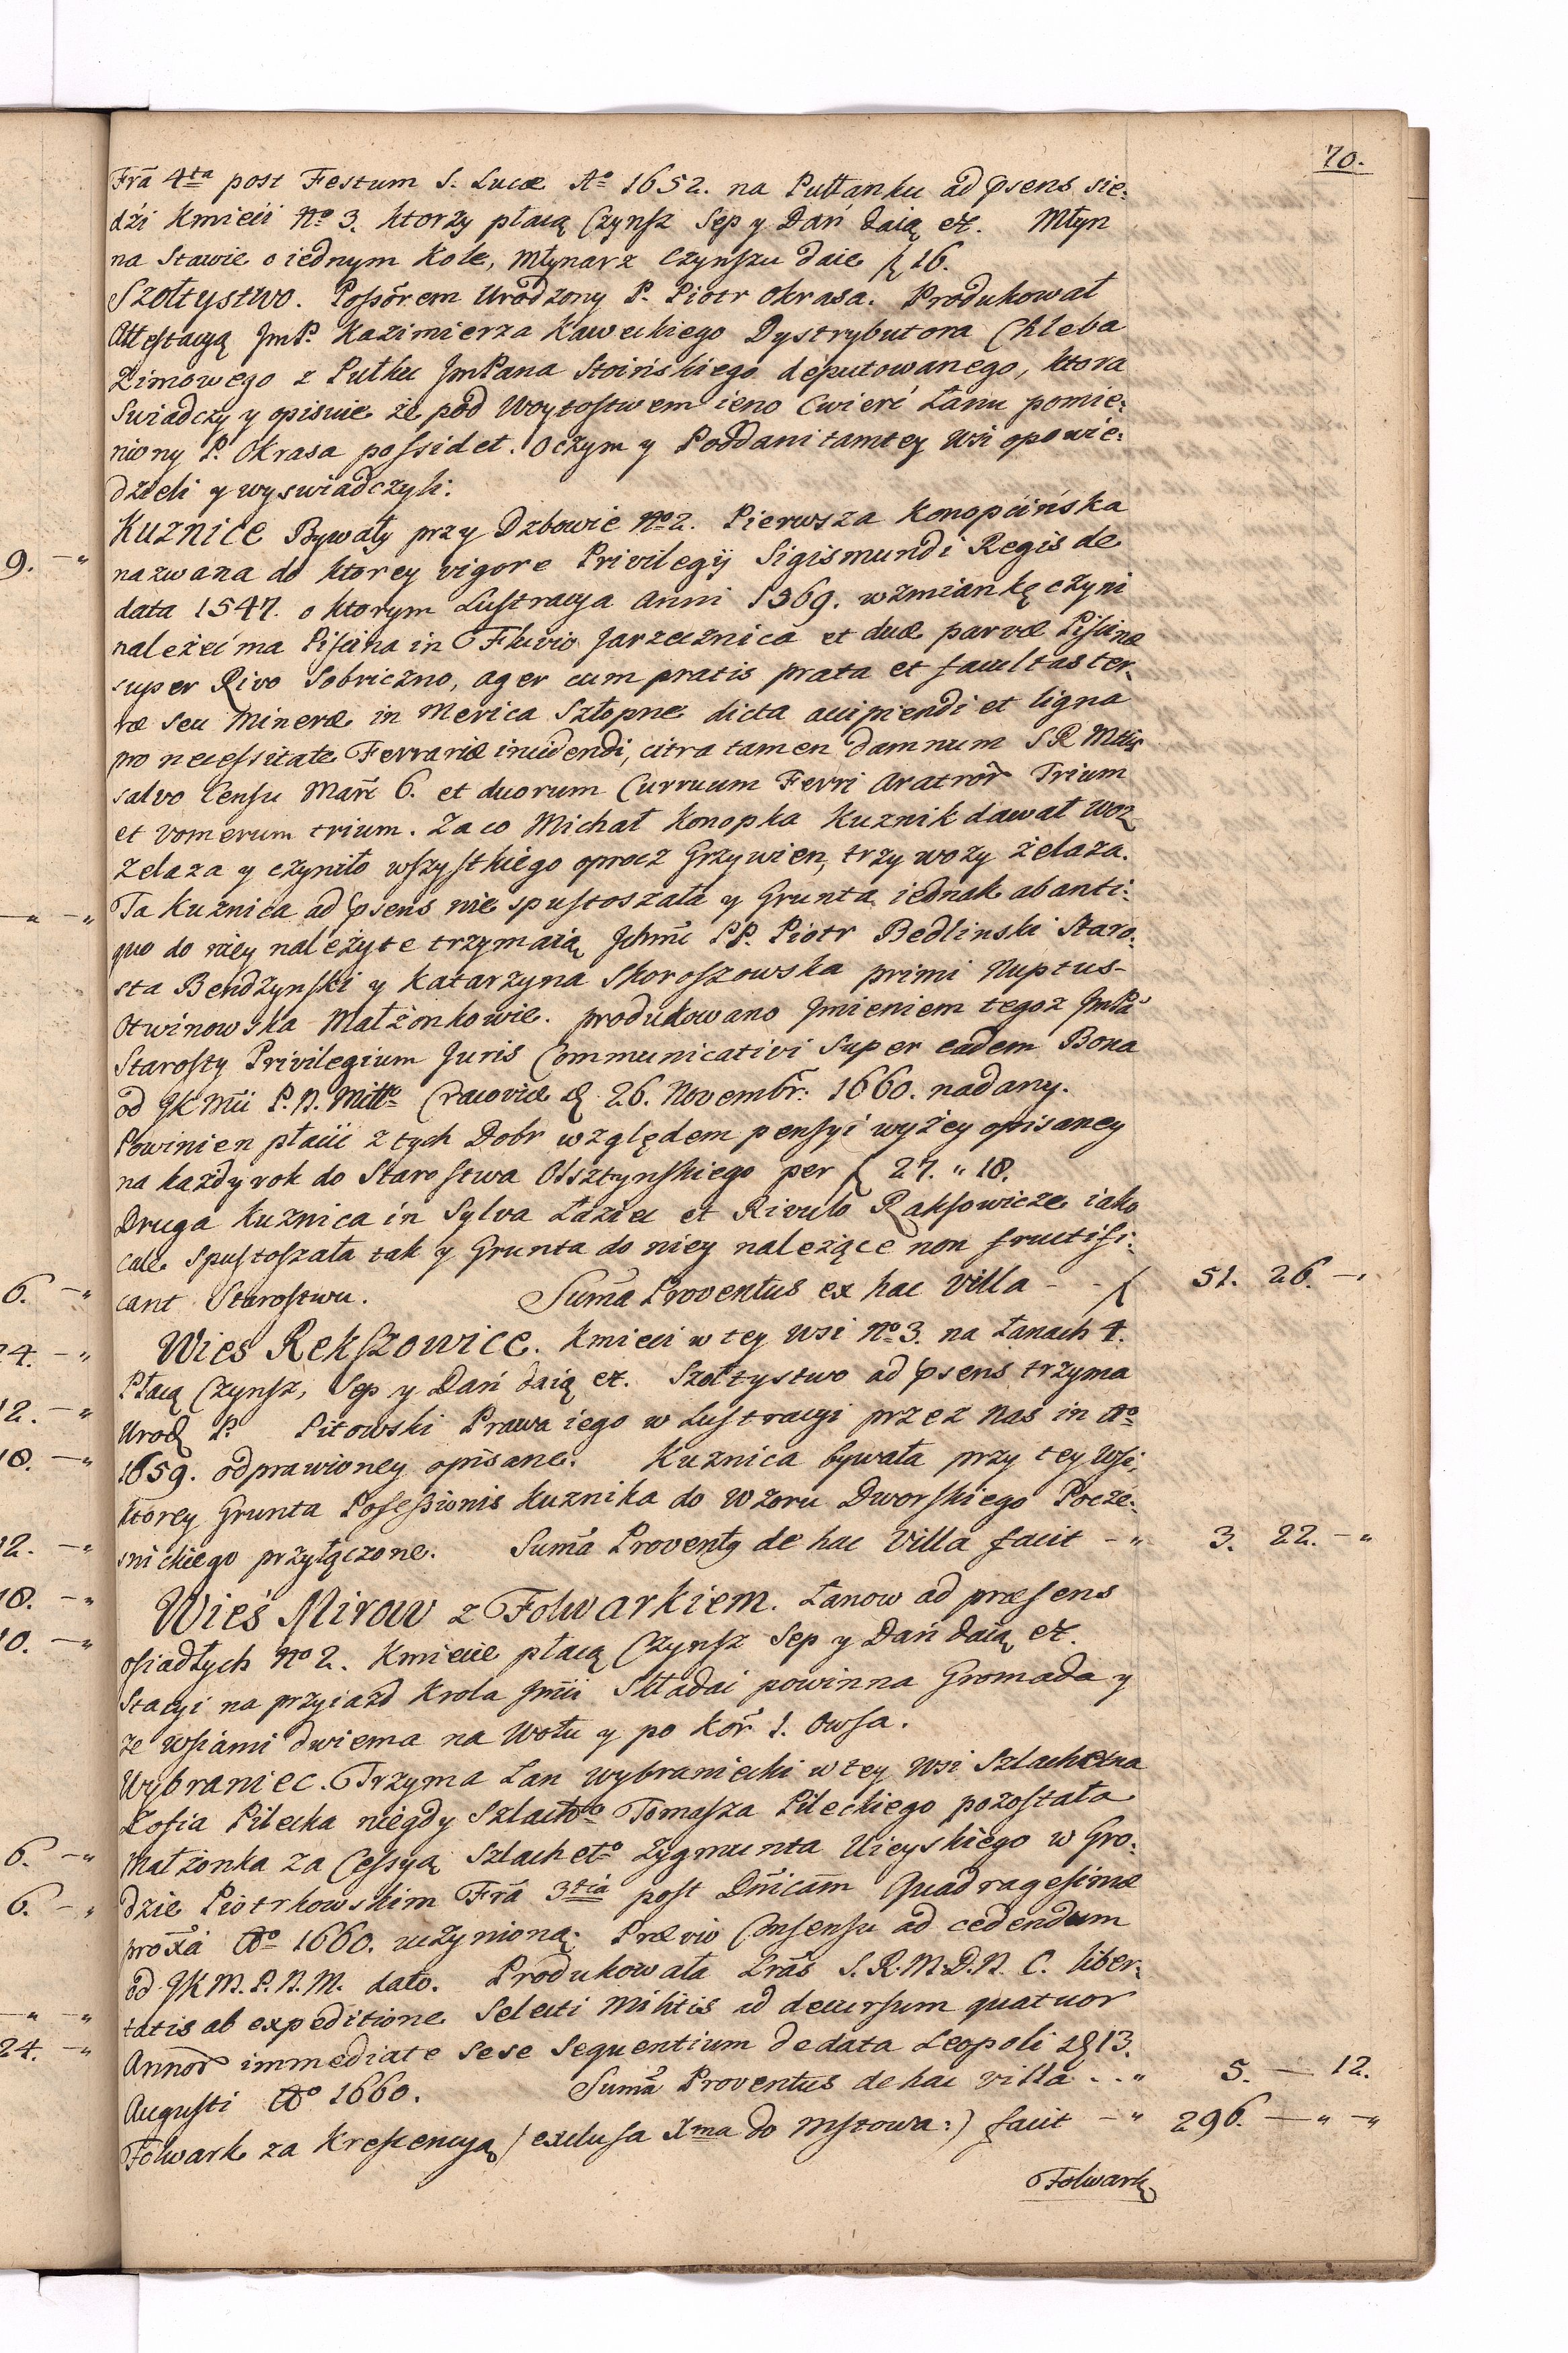 70.
Frã 4ta post Festum S. Lucæ Ao 1652. na Pułłanku ad psens sie:
dźi Kmieći No 3. ktorzy płacą Czynsz Sep y Dań daią etc. Młyn
na Stawie o iednym Kole, Młynarz czynszu daie f 16.
Szołtystwo. Possõrem Urodzony P. Piotr Okrasa. Produkował
Attestacyą JmP. Kazimierza Kaweckiego Dystrybutora Chleba
Zimowego z Pułku JmPana Stoińskiego deputowanego, ktora
Swiadczy y opisuie że pod Woytostwem ieno Cwierć Łanu pomie:
niony P. Okrasa possidet. Oczym y Poddani tamtey Wsi opowie:
dzieli y wyswiadczyli:
Kuznice Bywały przy Dzbowie No 2. Pierwsza Konopcińska
9. —„
nazwana do ktorey vigore Privilegij Sigismundi Regis de
data 1547. o ktorym Lustracya Anni 1569. wzmiankę czyni
należeć ma Piscina in Fluvio Jarzecznica et duæ parvæ Piscinæ
super Rivo Sobriczno, ager cum pratis prata et facultas ter:
ræ seu Mineræ in Merica Szłopne dicta accipiendi et ligna
pro necessitate Ferrariæ incidendi, citra tamen damnum S R Mttis
salvo Censu Mar̃c 6. et duorum Curruum Ferri Aratror̃ Trium
et Vomerum trium. Za co Michał Konopka Kuznik dawał woz
Zelaza y czyniło wszystkiego oprocz Grzywien, trzy wozy żelaza.
—„ —„
Ta Kuznica ad psens nie spustoszała y Grunta iednak ab anti:
quo do niey należyte trzymaią Jchmc PP. Piotr Bedlinski Staro:
sta Bendzynski y Katarzyna Skoroszowska primi Nuptus-
Otwinowska Małżonkowie. produkowano Jmieniem tegoz JmPa
Starosty Privilegium Juris Communicativi Super eadem Bona
od JK Mci P. N. Miłło Cracoviæ d. 26. Novembr̃. 1660. nadany.
Powinien płacić z tych Dobr względem pensyi wyżey opisaney
na każdy rok do Starostwa Olsztynskiego per f 27. „ 18.
Druga Kuznica in Sylva Łaziec et Rivulo Raksowicze iako
cale Spustoszała tak y Grunta do niey należące non fructifi:
6. —„
cant Starostwu. Sum̃a Proventus ex hac Villa - - f 51. 26. —„
Wieś Rekszowice. Kmieci w tey Wsi No 3. na Łanach 4.
24. —„
Płacą Czynsz, Sep y Dań daią etc. Szołtystwo ad psens trzyma
12. —„
Urodz P. Pitowski Prawa iego w Lustracyi przez Nas in Ao
18. —„
1659. odprawioney opisane. Kuznica bywała przy tey Wsi,
ktorey Grunta Possessionis Kuznika do Wzoru Dworskiego Pocze:
12. —„
snickiego przyłączone. Sum̃a Proventg de hac Villa facit —„ 3. 22. —„
18. —„
Wieś Mirow z Folwarkiem. Łanow ad præsens
10. —„
osiadłych No 2. Kmiecie płacą Czynsz Sep y Dań daią etc.
Stacyi na przyiazd Krola Jmci Składać powinna Gromada y
ze Wsiami dwiema na Wołu y po kor̃ 1. Owsa.
Wybraniec. Trzyma Łan wybraniecki w tey Wsi Szlachetna
Zofia Pilecka niegdy Szlachto Tomasza Pileckiego pozostała
6. —„
Małżonka za Cessyą Szlacheto Zygmunta Uieyskiego w Gro:
6. —„
dzie Piotrkowskim Frã 3tia post Dñicam Quadragesimæ
prox̃a Ao 1660. uczynioną. Prævio Consensu ad cedendum
od JK M. P. N. M. dato. Produkowała Lrãs S. R. M. D. N. C. liber:
—„ —„
tatis ab expeditione Selecti Militis ad decursum quatuor
24. —„
Annor̃ immediate sese Sequentium de data Leopoli d 13.
Augusti Ao 1660. Sum̃a Proventus de hac villa - - „ 5. — 12.
Folwark za Krescencyą /: exclusa Xma do Mstowa :/ facit —„ 296. —„ —„
Folwark